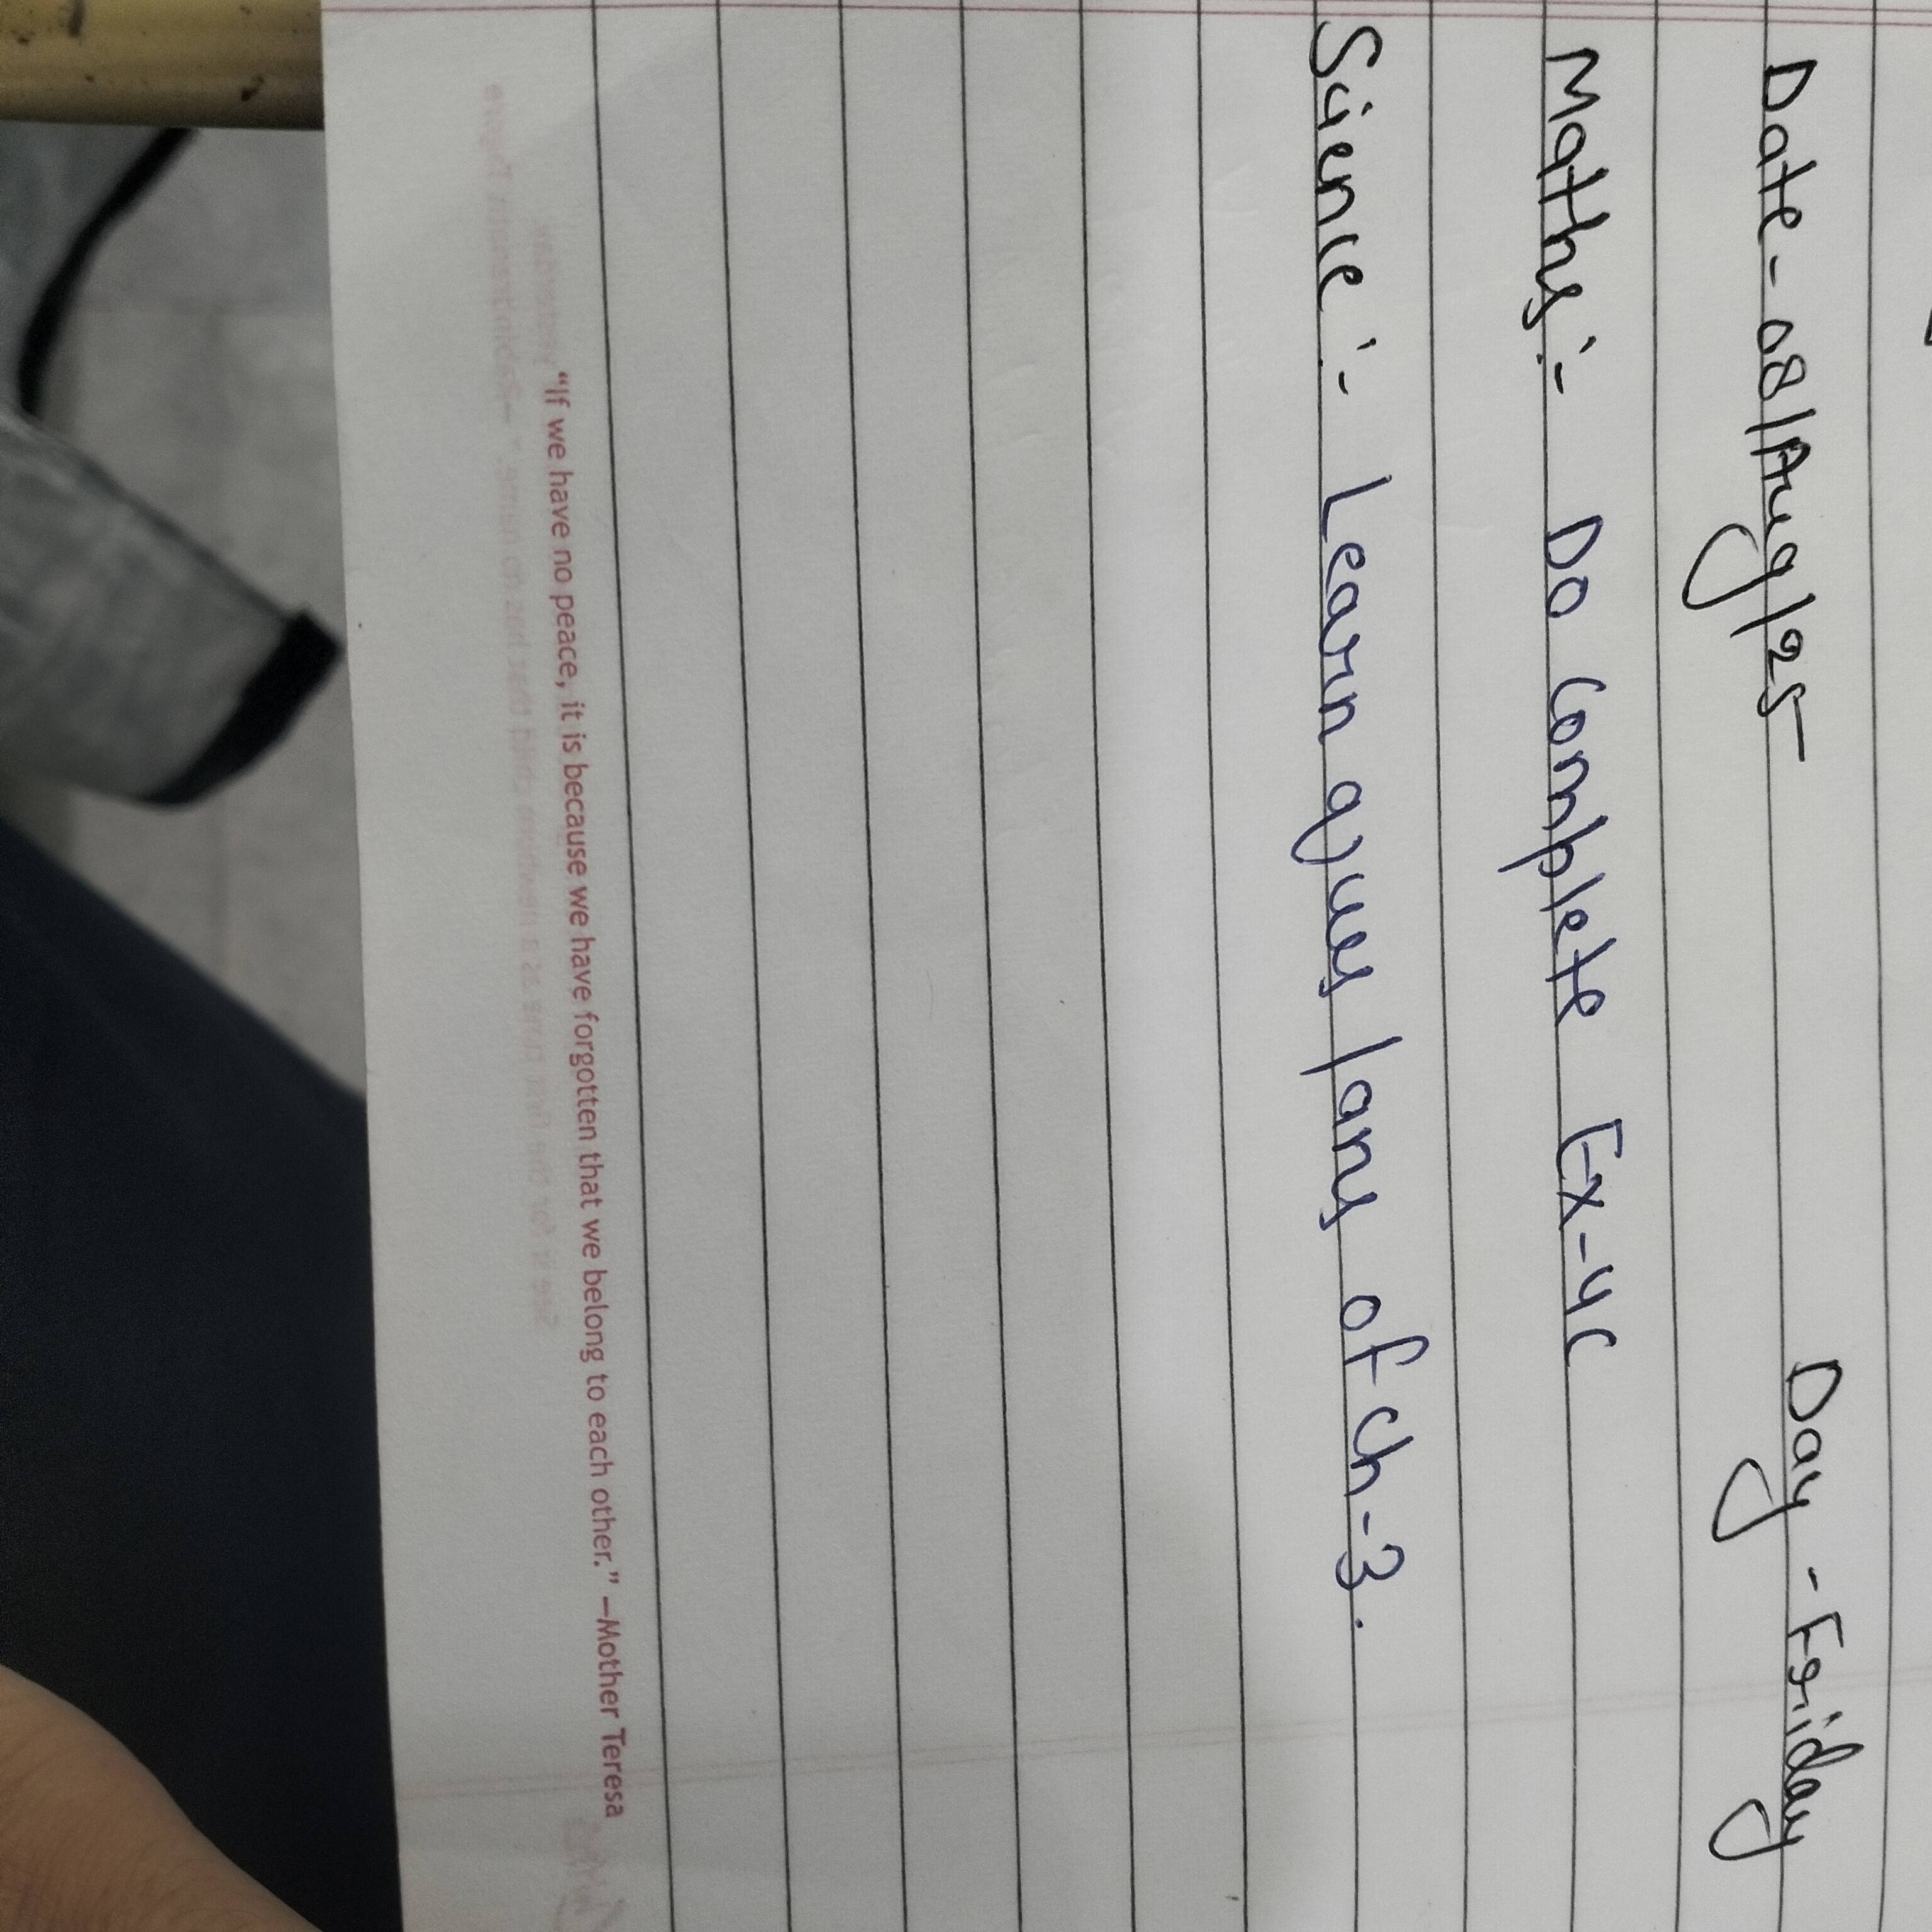 Date - 08/Aug/25 Day - Friday
Maths :- Do Complete Ex-4C
Science :- Learn ques/ans of ch-3.
"If we have no peace, it is because we have forgotten that we belong to each other." –Mother Teresa